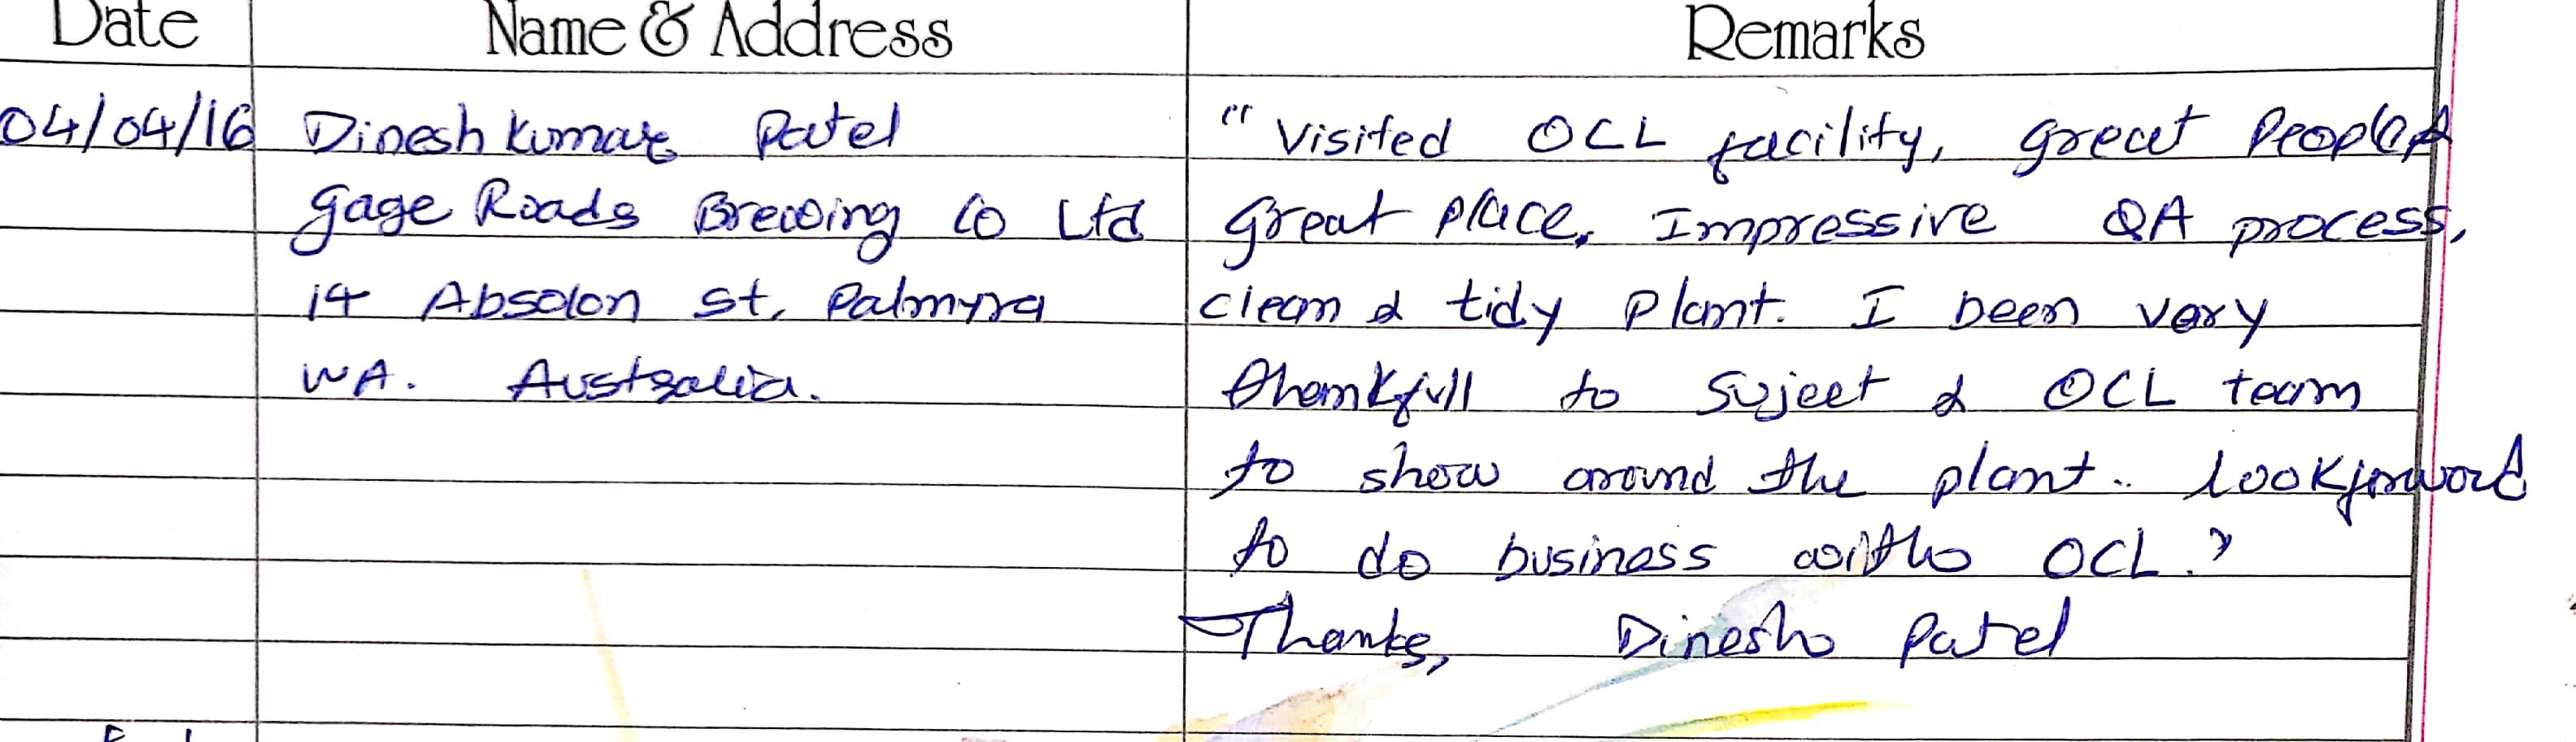 Date Name & Address Remarks
04/04/16 Dinesh Kumar Patel "Visited OCL facility, great People &
Gage Roads Brewing Co Ltd great place. Impressive QA process,
14 Absolon St, Palmyra clean & tidy plant. I been very
WA. Australia. thankfull to Sujeet & OCL team
to show around the plant.. look forward
to do business with OCL."
Thanks, Dinesh Patel